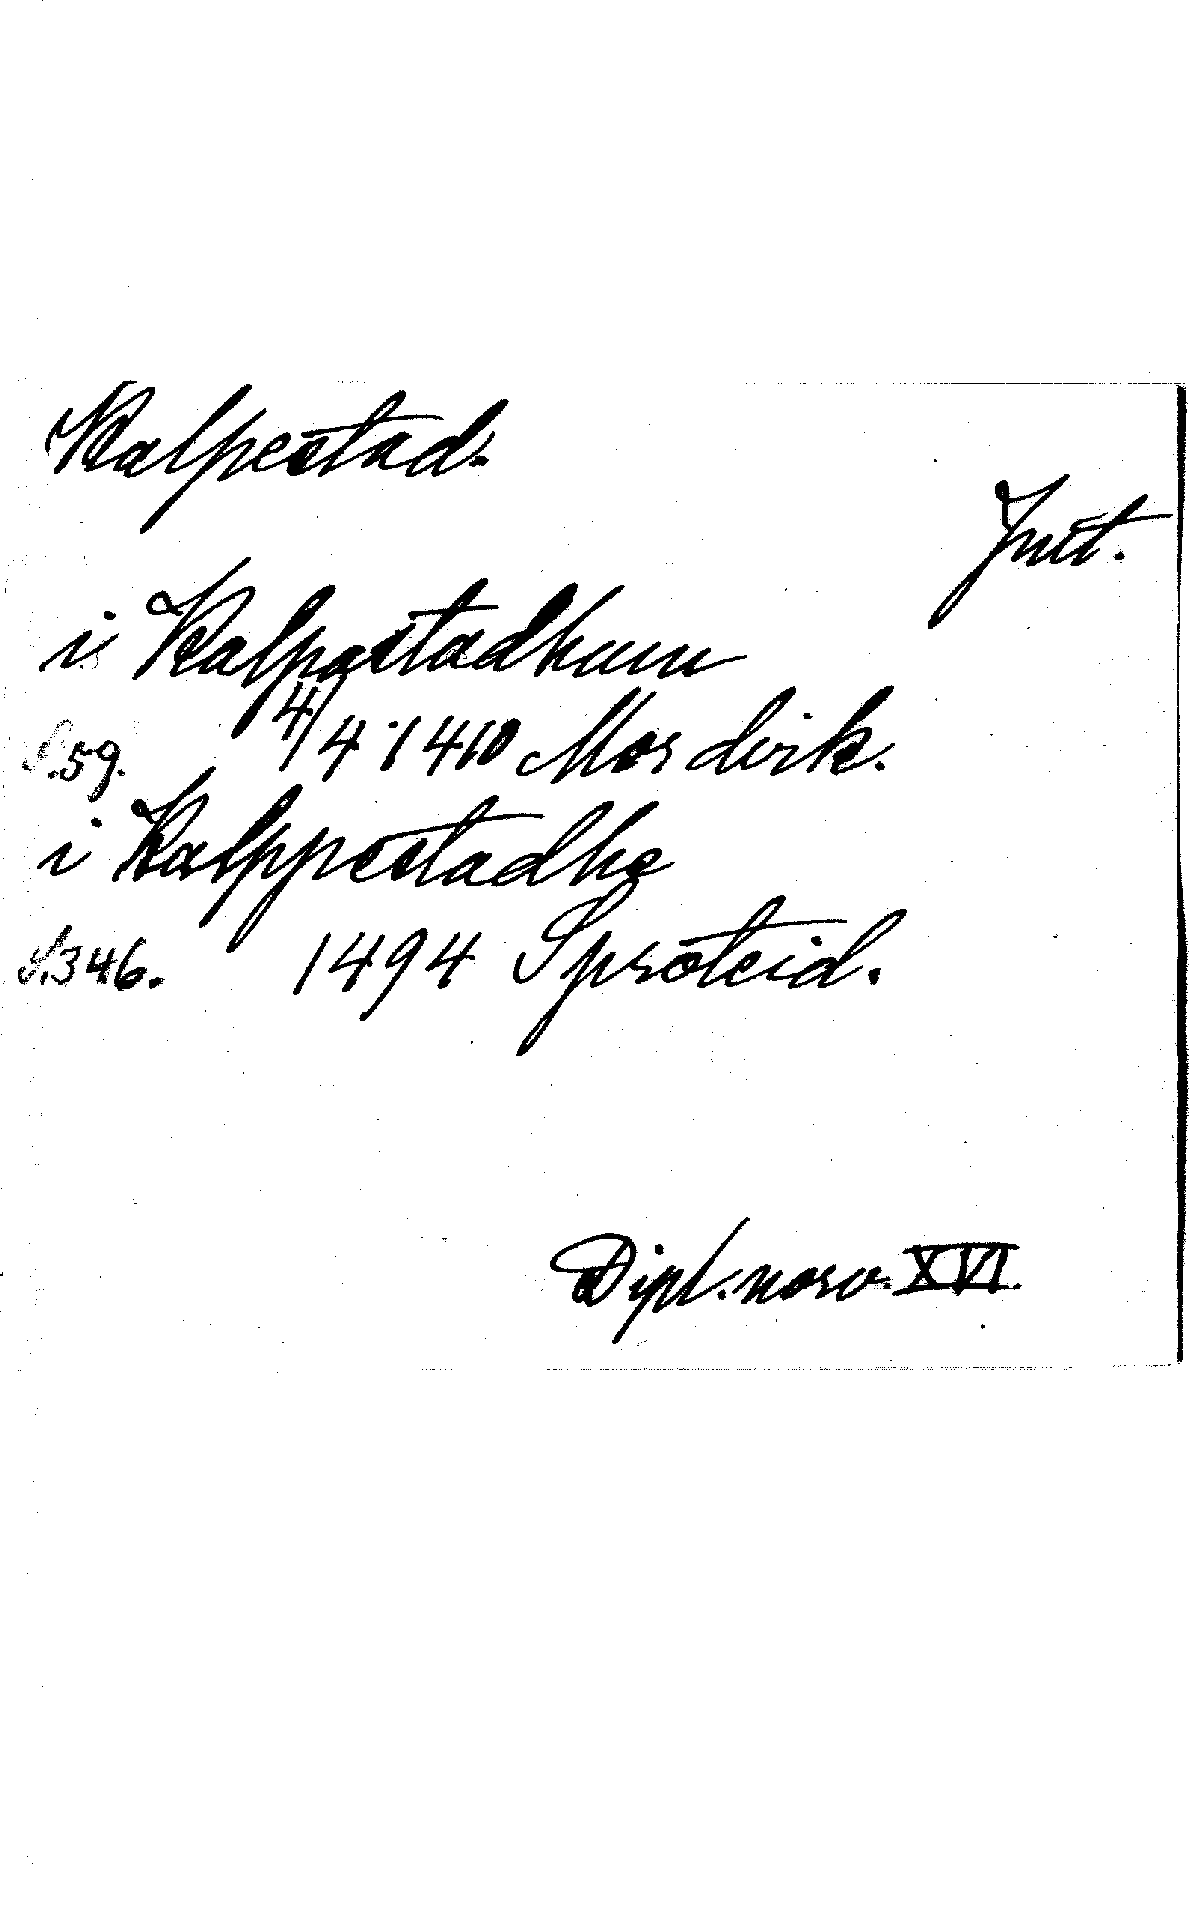 Kalpestad.
Jnst.
i Kalpastadhum
S.59. 4/4 1410 Mordvik.
i Kalppestadhe
S.346. 1494 Sproteid.
Dipl. norv. XVI.